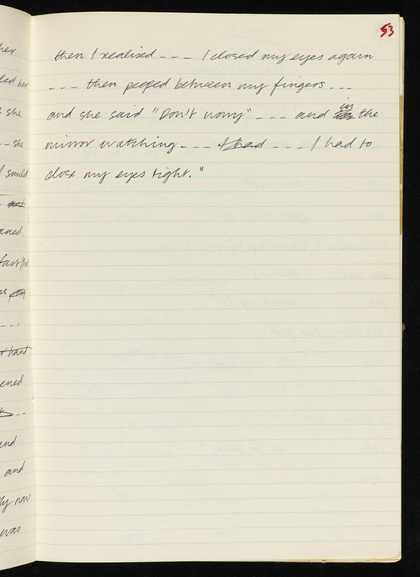 53
then I realised --- I closed my eyes again
--- then peeped between my fingers ...
and she said "Don't worry" --- and the
mirror watching --- I had --- I had to
close my eyes tight."
she
she
I smiled
and
and
now
was